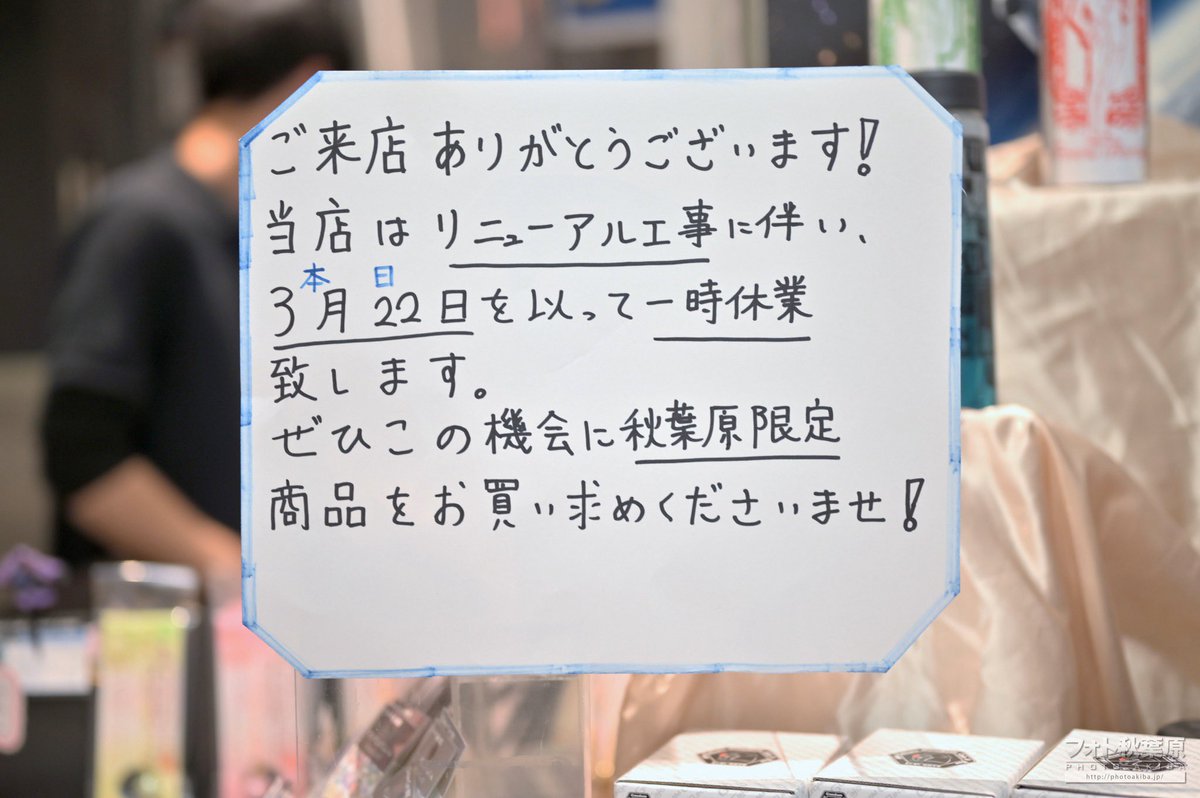 ご来店ありがとうございます!
当店はリニューアル工事に伴い、
本日
3月22日を以って一時休業
致します。
ぜひこの機会に秋葉原限定
商品をお買い求めくださいませ!
フォト秋葉原
PHOTO AKIBA
http://photoakiba.jp/